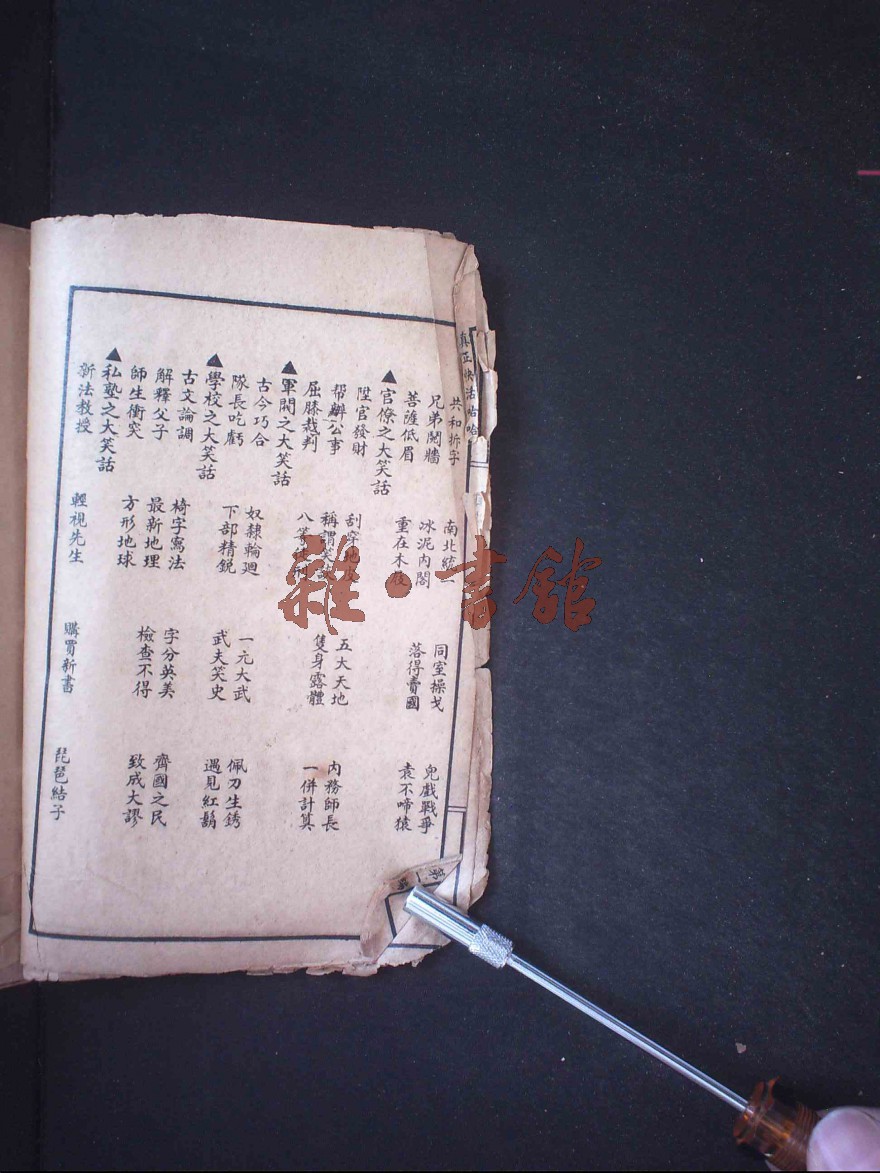 真正快活
共和拆字　南北統一　同室操戈　兒戲戰爭
兄弟鬩牆　冰泥內閣　落得賣國　袁不啼猿
菩薩低眉　重在木屐
▲官僚之大笑話
陞官發財　刮穿地皮　五大天地　內務師長
幫辦公事　稱謂笑　隻身露體　一併計算
屈膝裁判　八等
▲軍閥之大笑話
古今巧合　奴隸輪迴　一元大武　佩刀生銹
隊長吃虧　下部精銳　武夫笑史　遇見紅鬍
▲學校之大笑話
古文論調　椅字寫法　字分英美　齊國之民
解釋父子　最新地理　檢查不得　致成大謬
師生衝突　方形地球
▲私塾之大笑話
新法教授　輕視先生　購買新書　琵琶結子
第一
雜·書館